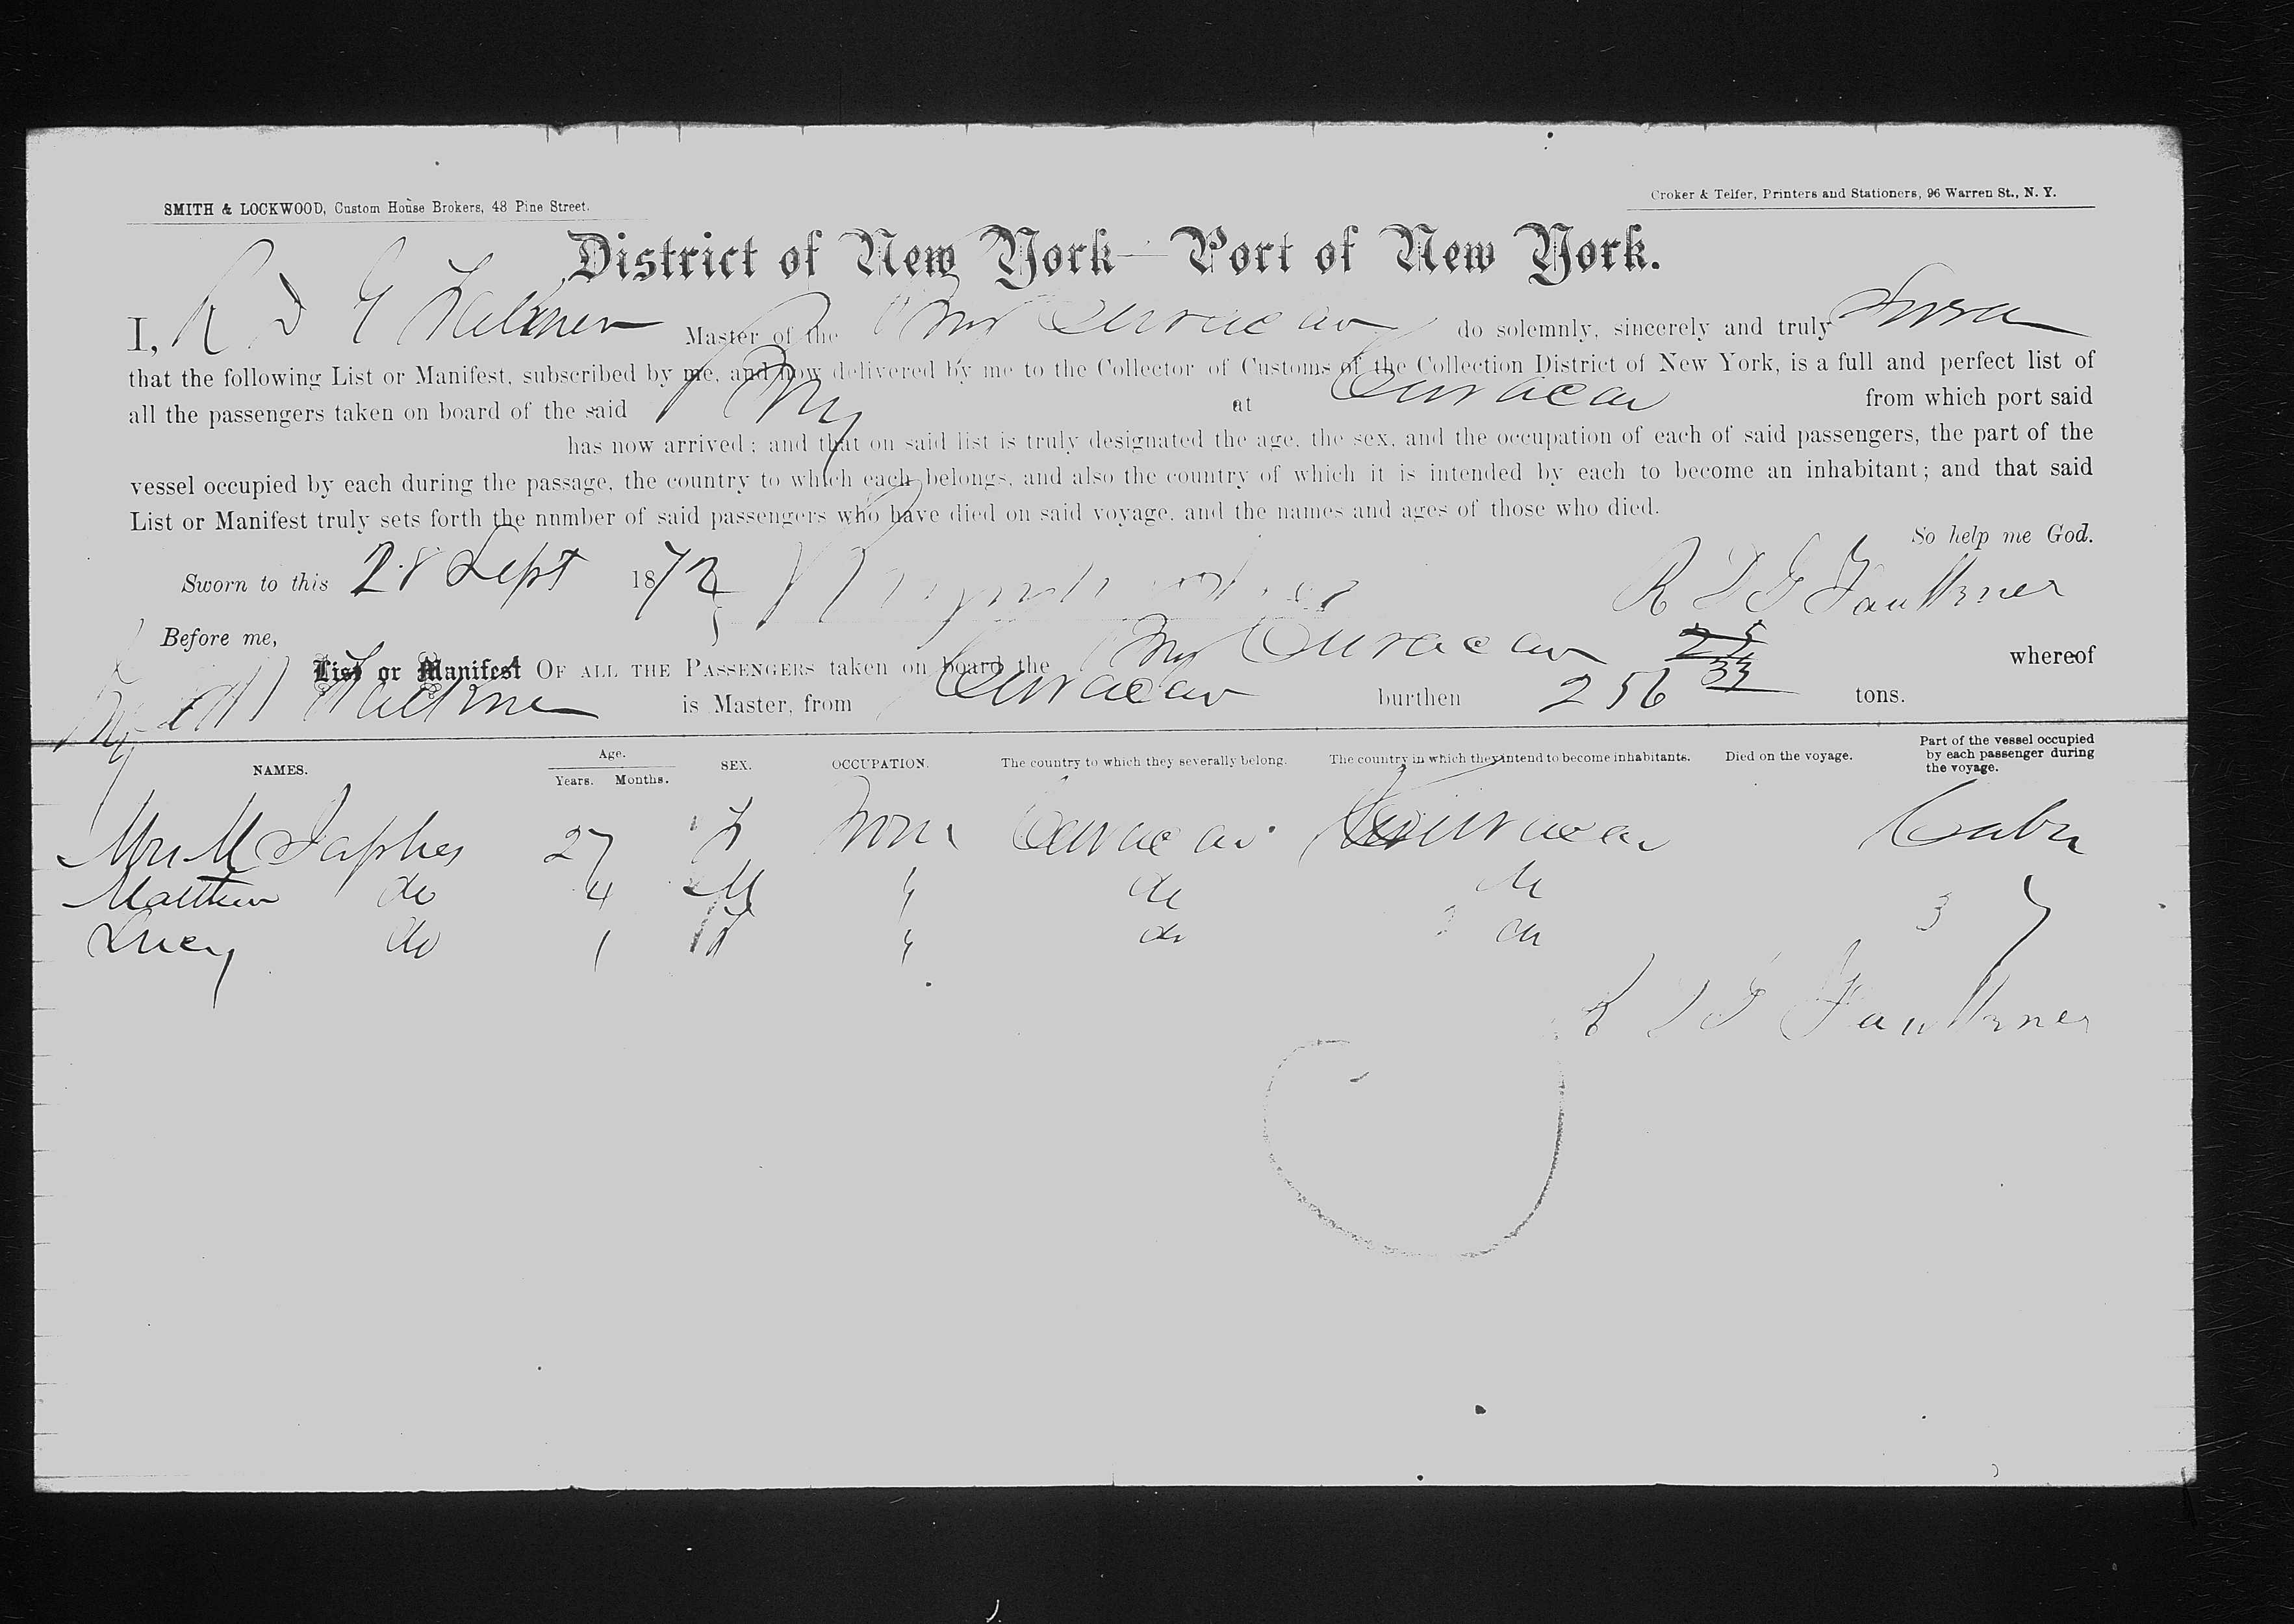 SMITH & LOCKWOOD, Custom House Brokers, 48 Pine Street.
Croker & Telfer, Printers and Stationers, 96 Warren St., N. Y.
District of New York—Port of New York.
I, R D G Falkner Master of the Brig Curacao do solemnly, sincerely and truly Swear
that the following List or Manifest, subscribed by me, and now delivered by me to the Collector of Customs of the Collection District of New York, is a full and perfect list of
all the passengers taken on board of the said Brig at Curacao from which port said
has now arrived; and that on said list is truly designated the age, the sex, and the occupation of each of said passengers, the part of the
vessel occupied by each during the passage, the country to which each belongs, and also the country of which it is intended by each to become an inhabitant; and that said
List or Manifest truly sets forth the number of said passengers who have died on said voyage, and the names and ages of those who died.
So help me God.
Sworn to this 28 Sept 1872 R D G Faulkner
Before me,
List or Manifest OF ALL THE PASSENGERS taken on board the Brig Curacao whereof
Faulkner is Master, from Curacao burthen 256 33 tons.
NAMES. Age. Years. Months. SEX. OCCUPATION. The country to which they severally belong. The country in which they intend to become inhabitants. Died on the voyage. Part of the vessel occupied by each passenger during the voyage.
Mrs M 27 F None Curacao Curacao Cabin
Matthew do 4 M " do do
Lucy do 1 F " do do 3
R D G Faulkner